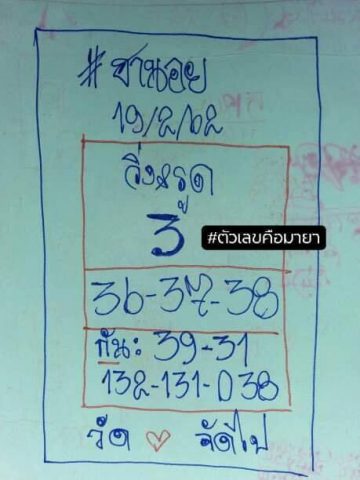 #ฮานอย
19/2/62
วิ่ง รูด
3
#ตัวเลขคือมายา
36-37-38
กัน: 39-31
132-131-038
วัด ♡ จัดไป